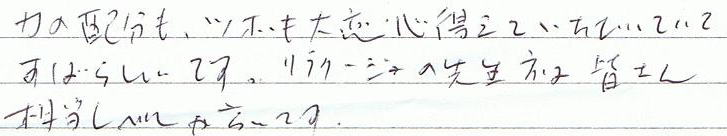 力の配分も、ツボも大変心得ていただいていて
すばらしいです。リラクージュの先生方は皆さん
相当レベルが高いです。